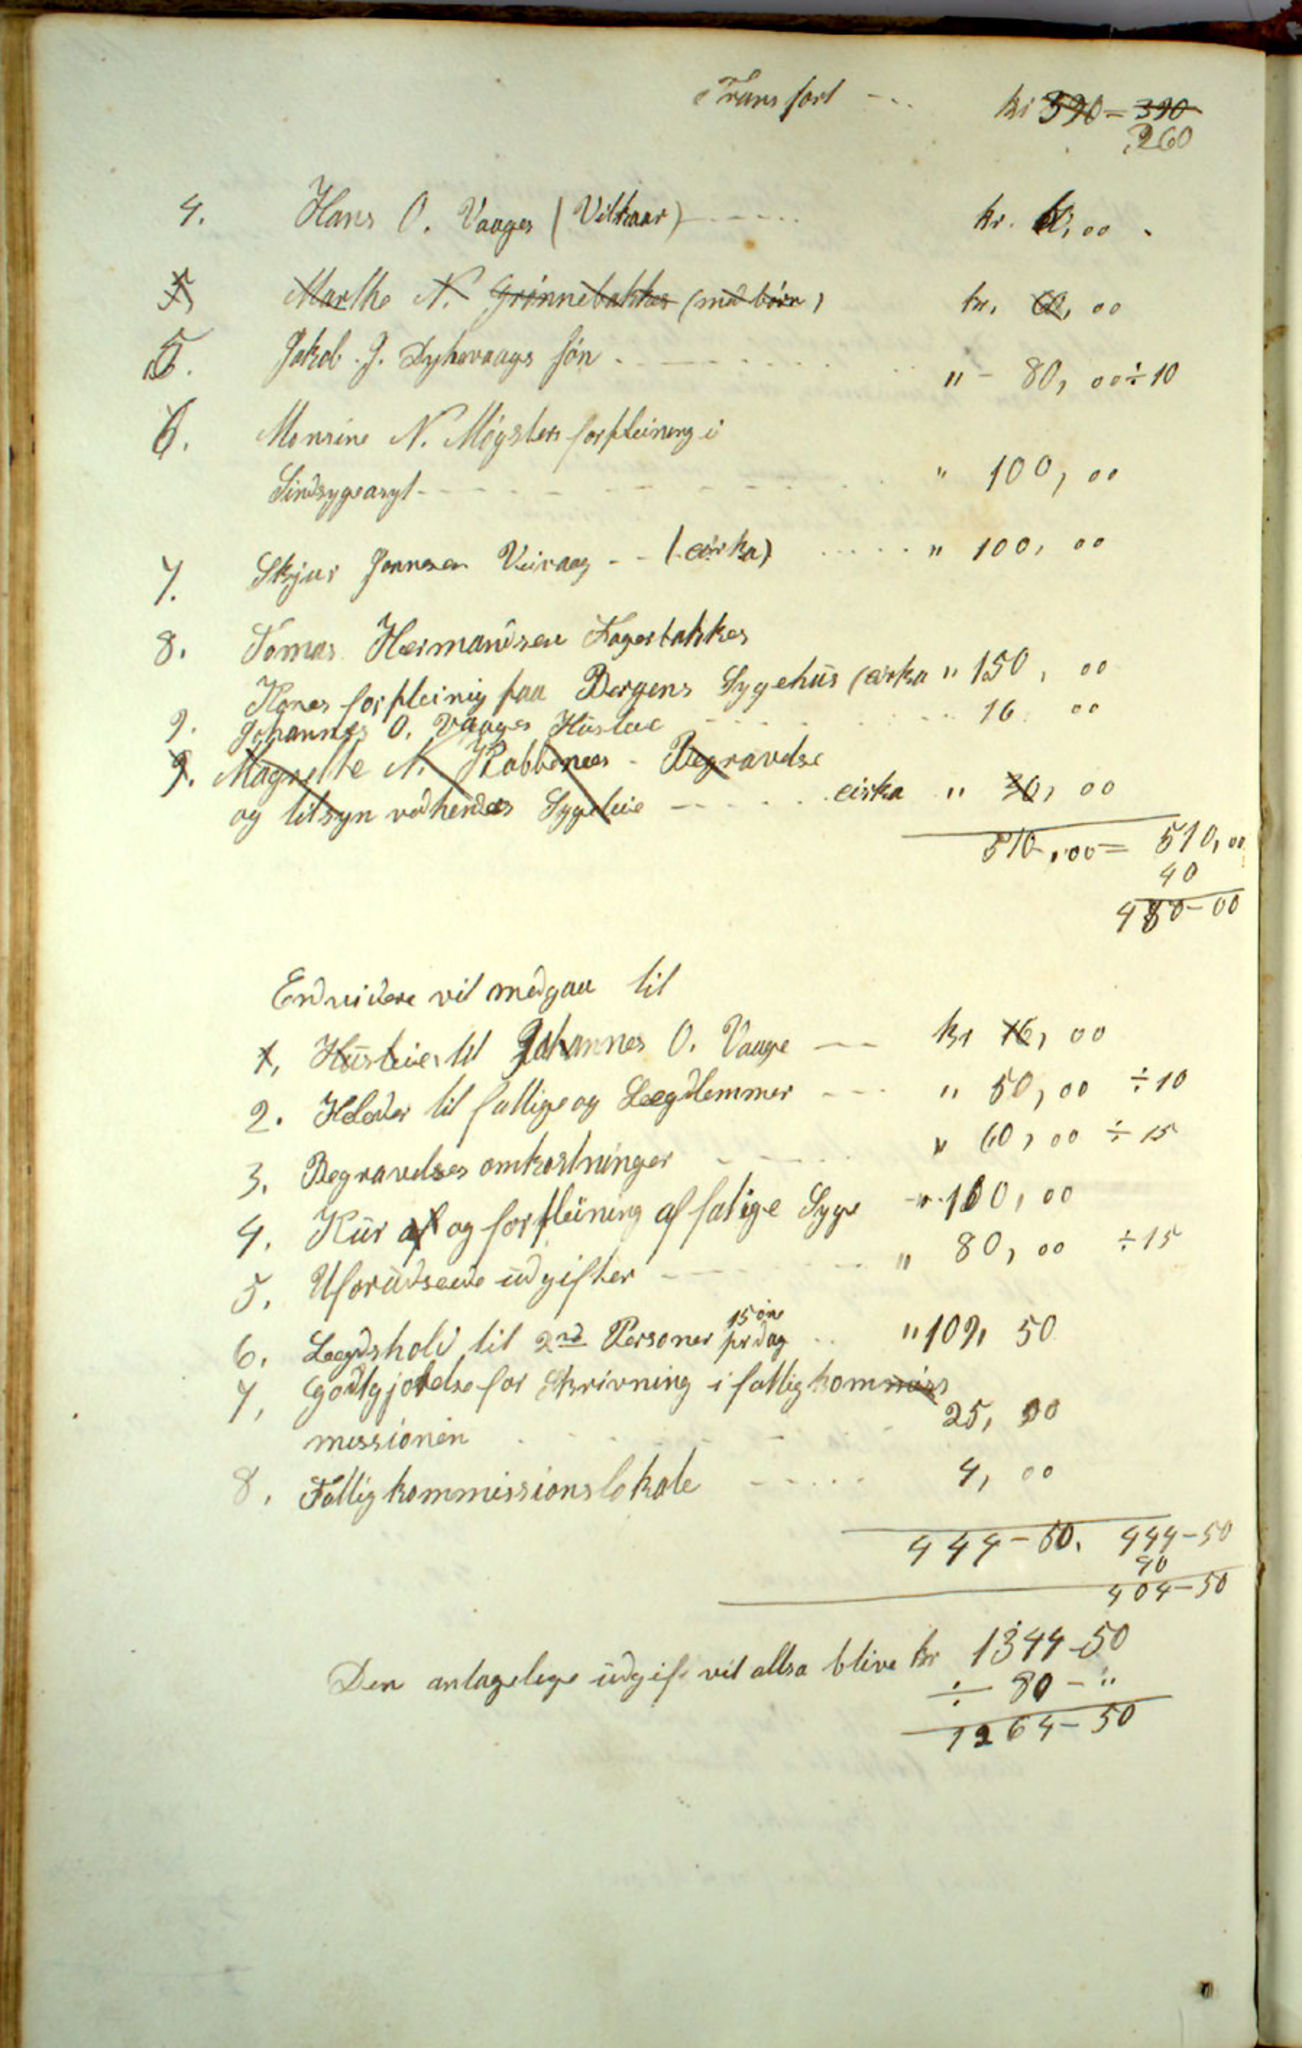 Transport - - - kr 390 = 390
260
4. Hans O. Vaages (Vilkaar) - - - - - kr. ,00 -
5 Marthe N. Grønnebakkes (med børn) kr. 60, 00
5. Jakob J. Dykevaags søn - - - - - " - 80, 00 ÷ 10
6. Monsine N. Møgsters forpleining i
Sindsygeasyl - - - - - - " 100, 00
7. Skjur Jonnesen Veivaag - - (cirka) - - - - " 100, 00
8. Tomas Hermandsen Fagerbakkes
Kones forpleinig paa Bergens Sygehus (cirka " 150, 00
9. Johannes O. Vaages Husleie - - - - - 16 00
9. Magnethe N. Rabbenæs - Begravelse
og tilsyn ved hendes Sygeleie - - - - cirka " 30, 00
510,00 = 510,00
40
480-00
Endvidere vil medgaa til
1, Husleie til Johannes O. Vaage - - kr 16, 00
2. Klæder til fattige og Lægdlemmer - - - " 50, 00 ÷ 10
3. Begravelses omkostninger - - - - " 60, 00 ÷ 15
4. Kur af og forpleining af fatige Syge - " 100, 00
5, Uforudseede udgifter - - - - - " 80, 00 ÷ 15
15 øre
6, Lægdshold til 2nd Personer pr dag - - " 109, 50
7, Godtgjørelse for Skrivning i fattigkommiss
missionen - - - - - 25, 00
8, Fattigkommissionslokale - - - - - 4, 00
444-50. 444-50
40
404-50
Den antagelige udgift vil altsa blive kr 1344-50
÷ 80 - "
1264-50